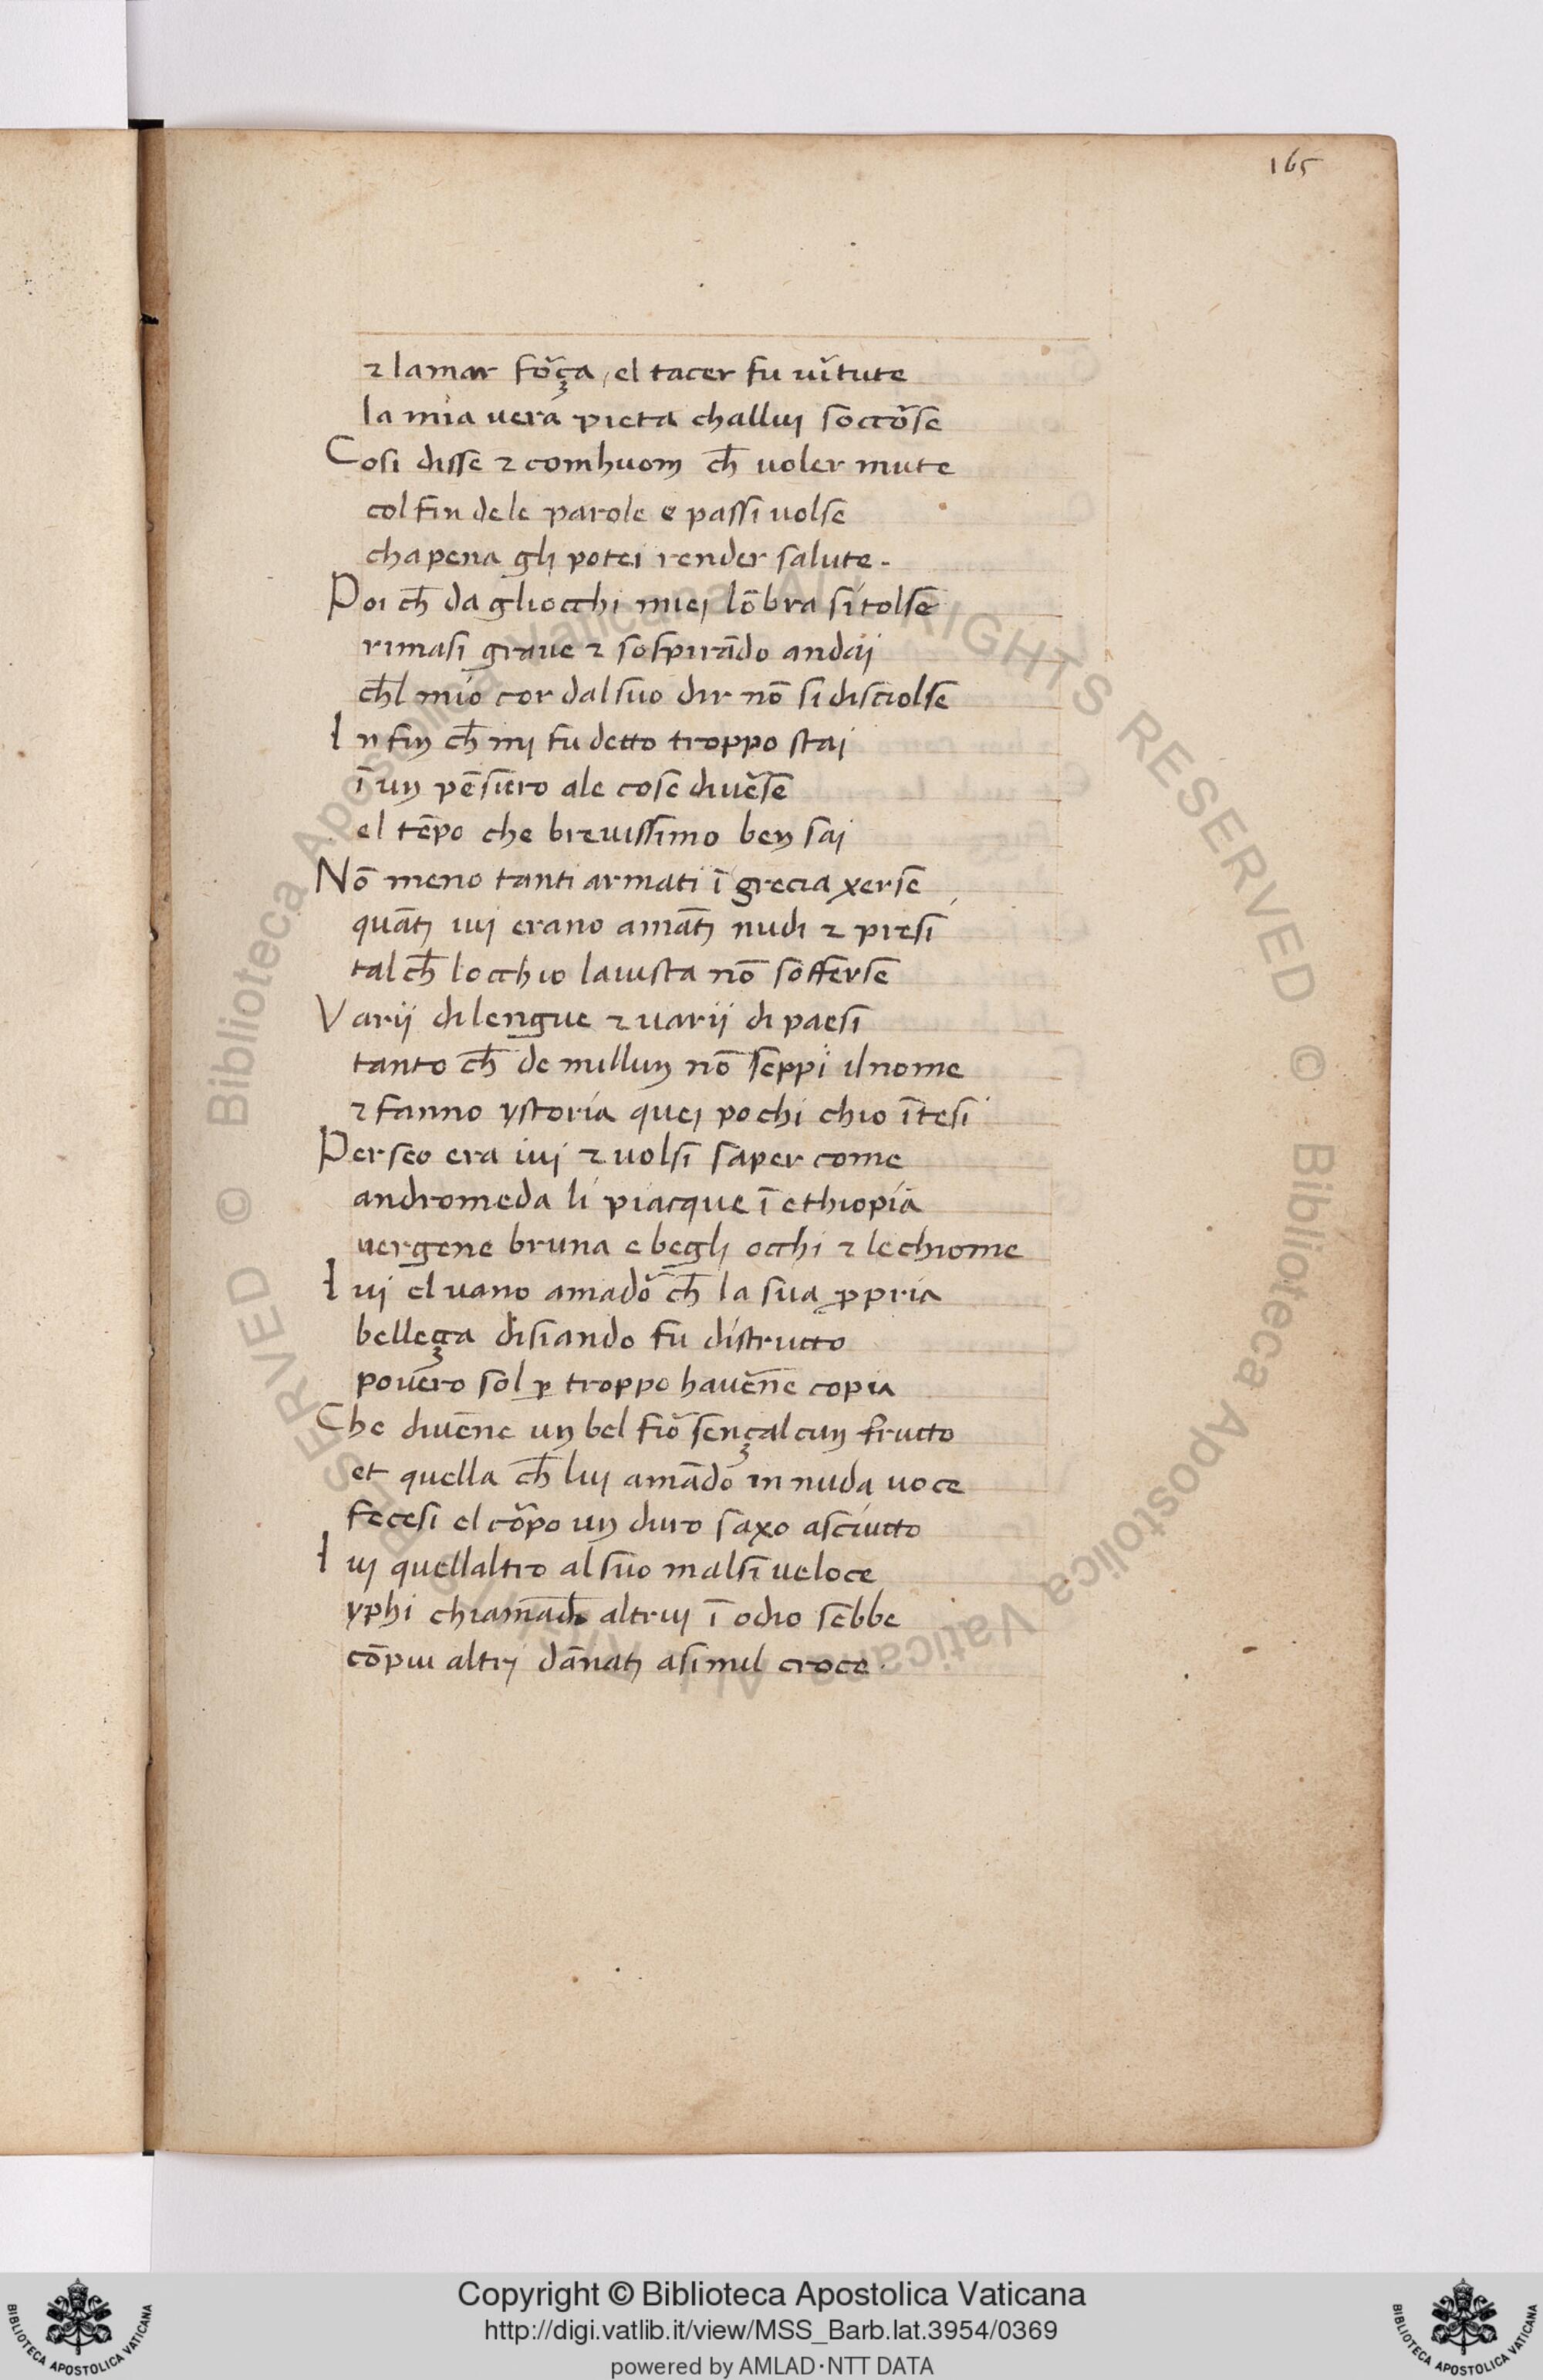 165
⁊ lamar foꝛ̃ça, el tacer fu uĩtute
la mia uera pieta challuj soccõse
Cosi disse ⁊ comhuom ch̄ uoler mute
col fin dele parole e passi uolse
chapena glj potei render salute.
Poi ch̄ da gliocchi miej lōbra si tolse
rimasi graue ⁊ sospirādo andaij
ch̄l mio cor dal suo dir nō si disciolse
Infin ch̄ mj fu detto troppo staj
ī un pēsiero ale cose diuẽse
el tēpo che breuissimo ben saj
Nō meno tanti armati ī grecia xerse
quātj iuj erano amātj nudi ⁊ presi
tal ch̄ locchio lauista nō sofferse
Varij di lengue ⁊ uarij di paesi
tanto ch̄ de millun nō seppi il nome
⁊ fanno ystoria quej pochi chio ītesi
Perseo era iuj ⁊ uolsi saper come
andromeda li piacque ī ethiopia
uergene bruna e beglj occhi ⁊ le chiome
Iuj el uano amadõ ch̄ la sua ꝓpria
belleça disiando fu distructo
pouero sol ꝑ troppo hauẽne copia
Che diuēne un bel fiõ sençalcun fructo
et quella ch̄ luj amādo in nuda uoce
fecesi el cõpo un duro saxo asciutto
Iuj quellaltro al suo mal si ueloce
yphi chiamādo altruj ī odio sebbe
cō piu altrj dānatj asimil croce.
Copyright © Biblioteca Apostolica Vaticana
http://digi.vatlib.it/view/MSS_Barb.lat.3954/0369
powered by AMLAD·NTT DATA
BIBLIOTECA APOSTOLICA VATICANA
BIBLIOTECA APOSTOLICA VATICANA
© Biblioteca Apostolica Vaticana ALL RIGHTS RESERVED
© Biblioteca Apostolica Vaticana ALL RIGHTS RESERVED